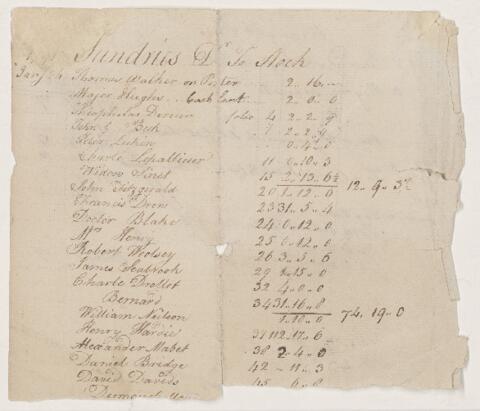 Sundries Dr To Stock
Thomas Walker on Porter 2 .. 16 ..
Major Hughes .. Cash Lent 2 .. 0 .. 0
folio 4 2 .. 2 .. 9
John G Beek 7 2 .. 2 .. 9
Peter 0 .. 4 .. 0
Charle Lehallieur 11 0 .. 10 .. 3
Widow Sinet 15 2 .. 13 .. 6½
12 .. 9 .. 3½
John Fitzgerald 20 1 .. 12 .. 0
Francis Drew 23 31 .. 5 .. 4
Doctor Blake 24 0 .. 12 .. 0
Mrs Henry 25 0 .. 12 .. 0
Robert Woolsey 26 3 .. 3 .. 6
James Seabrook 29 1 .. 15 .. 0
Charle Drollot 32 4 .. 0 .. 0
Bernard 34 31 .. 16 .. 8
74 .. 19 .. 0
William Neilson 1 .. 16 .. 0
Henry Hardie 37 112 .. 17 .. 6
Alexander Mabet 38 2 .. 4 .. 0
Daniel Bridge 42 .. 11 .. 3
David Davids 45 6 .. 8